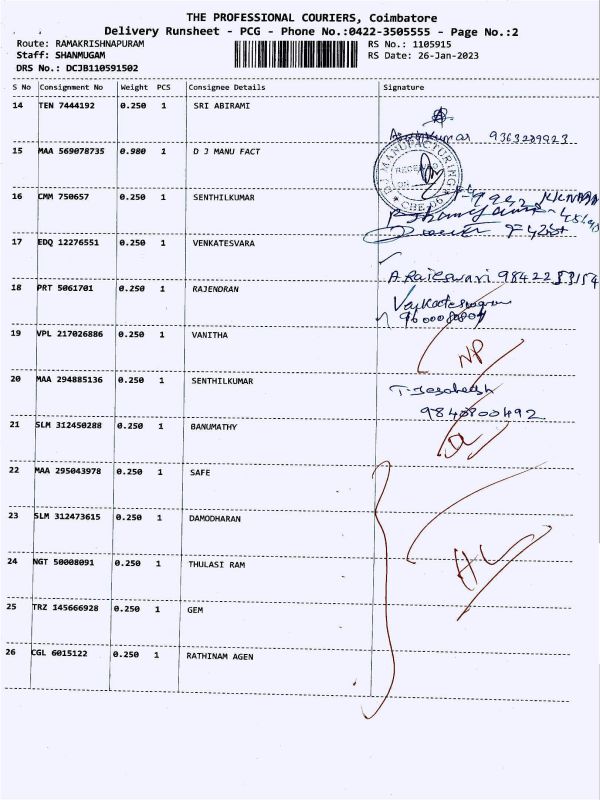 THE PROFESSIONAL COURIERS, Coimbatore
Delivery Runsheet - PCG - Phone No.:0422-3505555 - Page No.:2
Route: RAMAKRISHNAPURAM RS No.: 1105915
Staff: SHANMUGAM RS Date: 26-Jan-2023
DRS No.: DCJB110591502
S No Consignment No Weight PCS Consignee Details Signature
14 TEN 7444192 0.250 1 SRI ABIRAMI
9363289923
15 MAA 569078735 0.980 1 D J MANU FACT
DJ MANUFACTURING
RECEIVED
CBE-06
16 CMM 750657 0.250 1 SENTHILKUMAR
17 EDQ 12276551 0.250 1 VENKATESVARA
A. Rajeswari
18 PRT 5061701 0.250 1 RAJENDRAN
Venkateswaran
19 VPL 217026886 0.250 1 VANITHA
NP
20 MAA 294885136 0.250 1 SENTHILKUMAR
9840800492
21 SLM 312450288 0.250 1 BANUMATHY
22 MAA 295043978 0.250 1 SAFE
23 SLM 312473615 0.250 1 DAMODHARAN
24 NGT 50008091 0.250 1 THULASI RAM
25 TRZ 145666928 0.250 1 GEM
26 CGL 6015122 0.250 1 RATHINAM AGEN